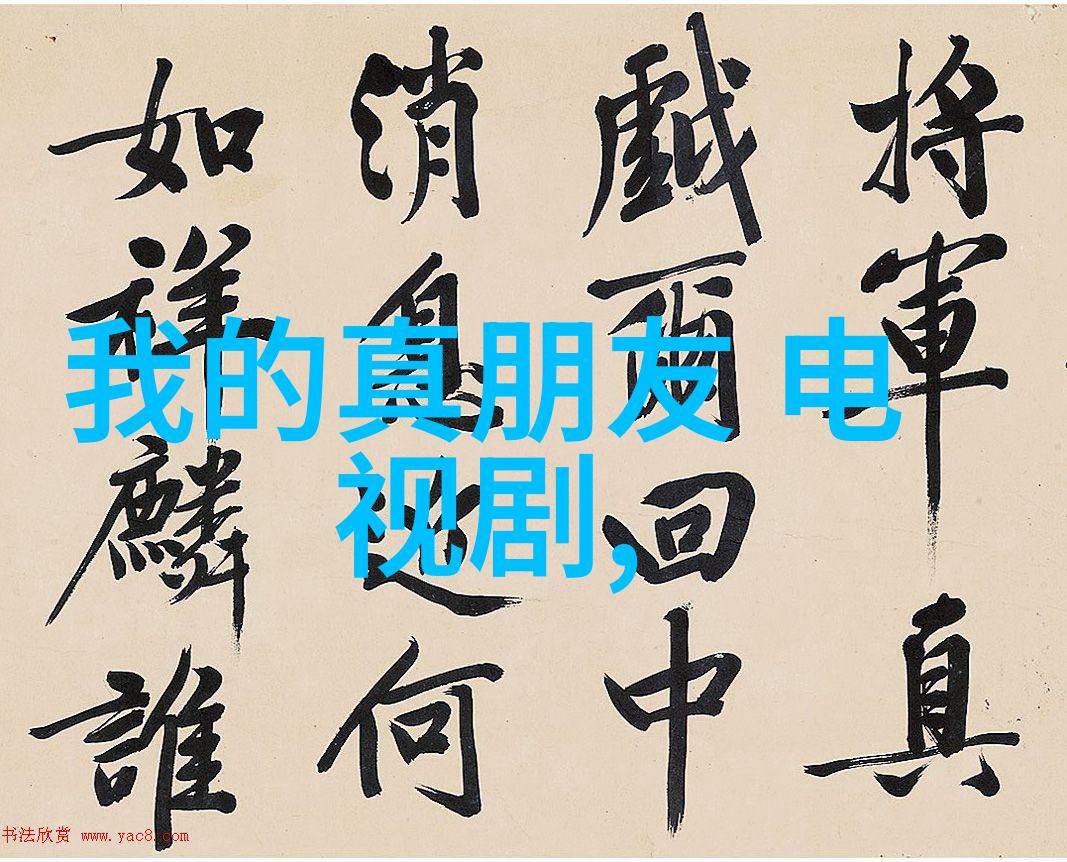 将軍真
戲爾回中
消息何
如祥麟誰
我的真朋友 电
视剧,
书法欣赏 www.yac8.com